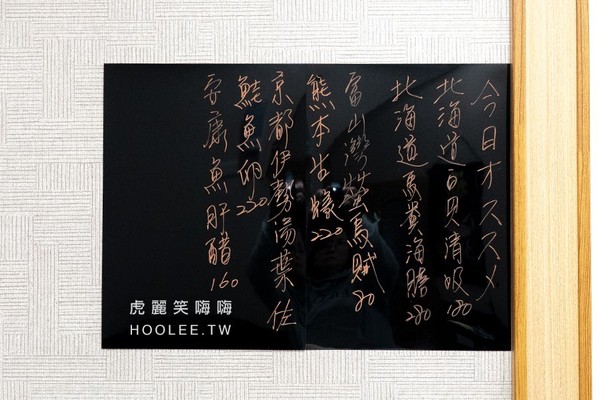 今日オススメ
北海道白貝清吸 180
北海道馬糞海膽 280
富山灣螢烏賊 80
熊本牡蠣 220
京都伊勢湯葉佐
鮭魚卵 220
安康魚肝醋 160
虎麗笑嗨嗨
HOOLEE.TW